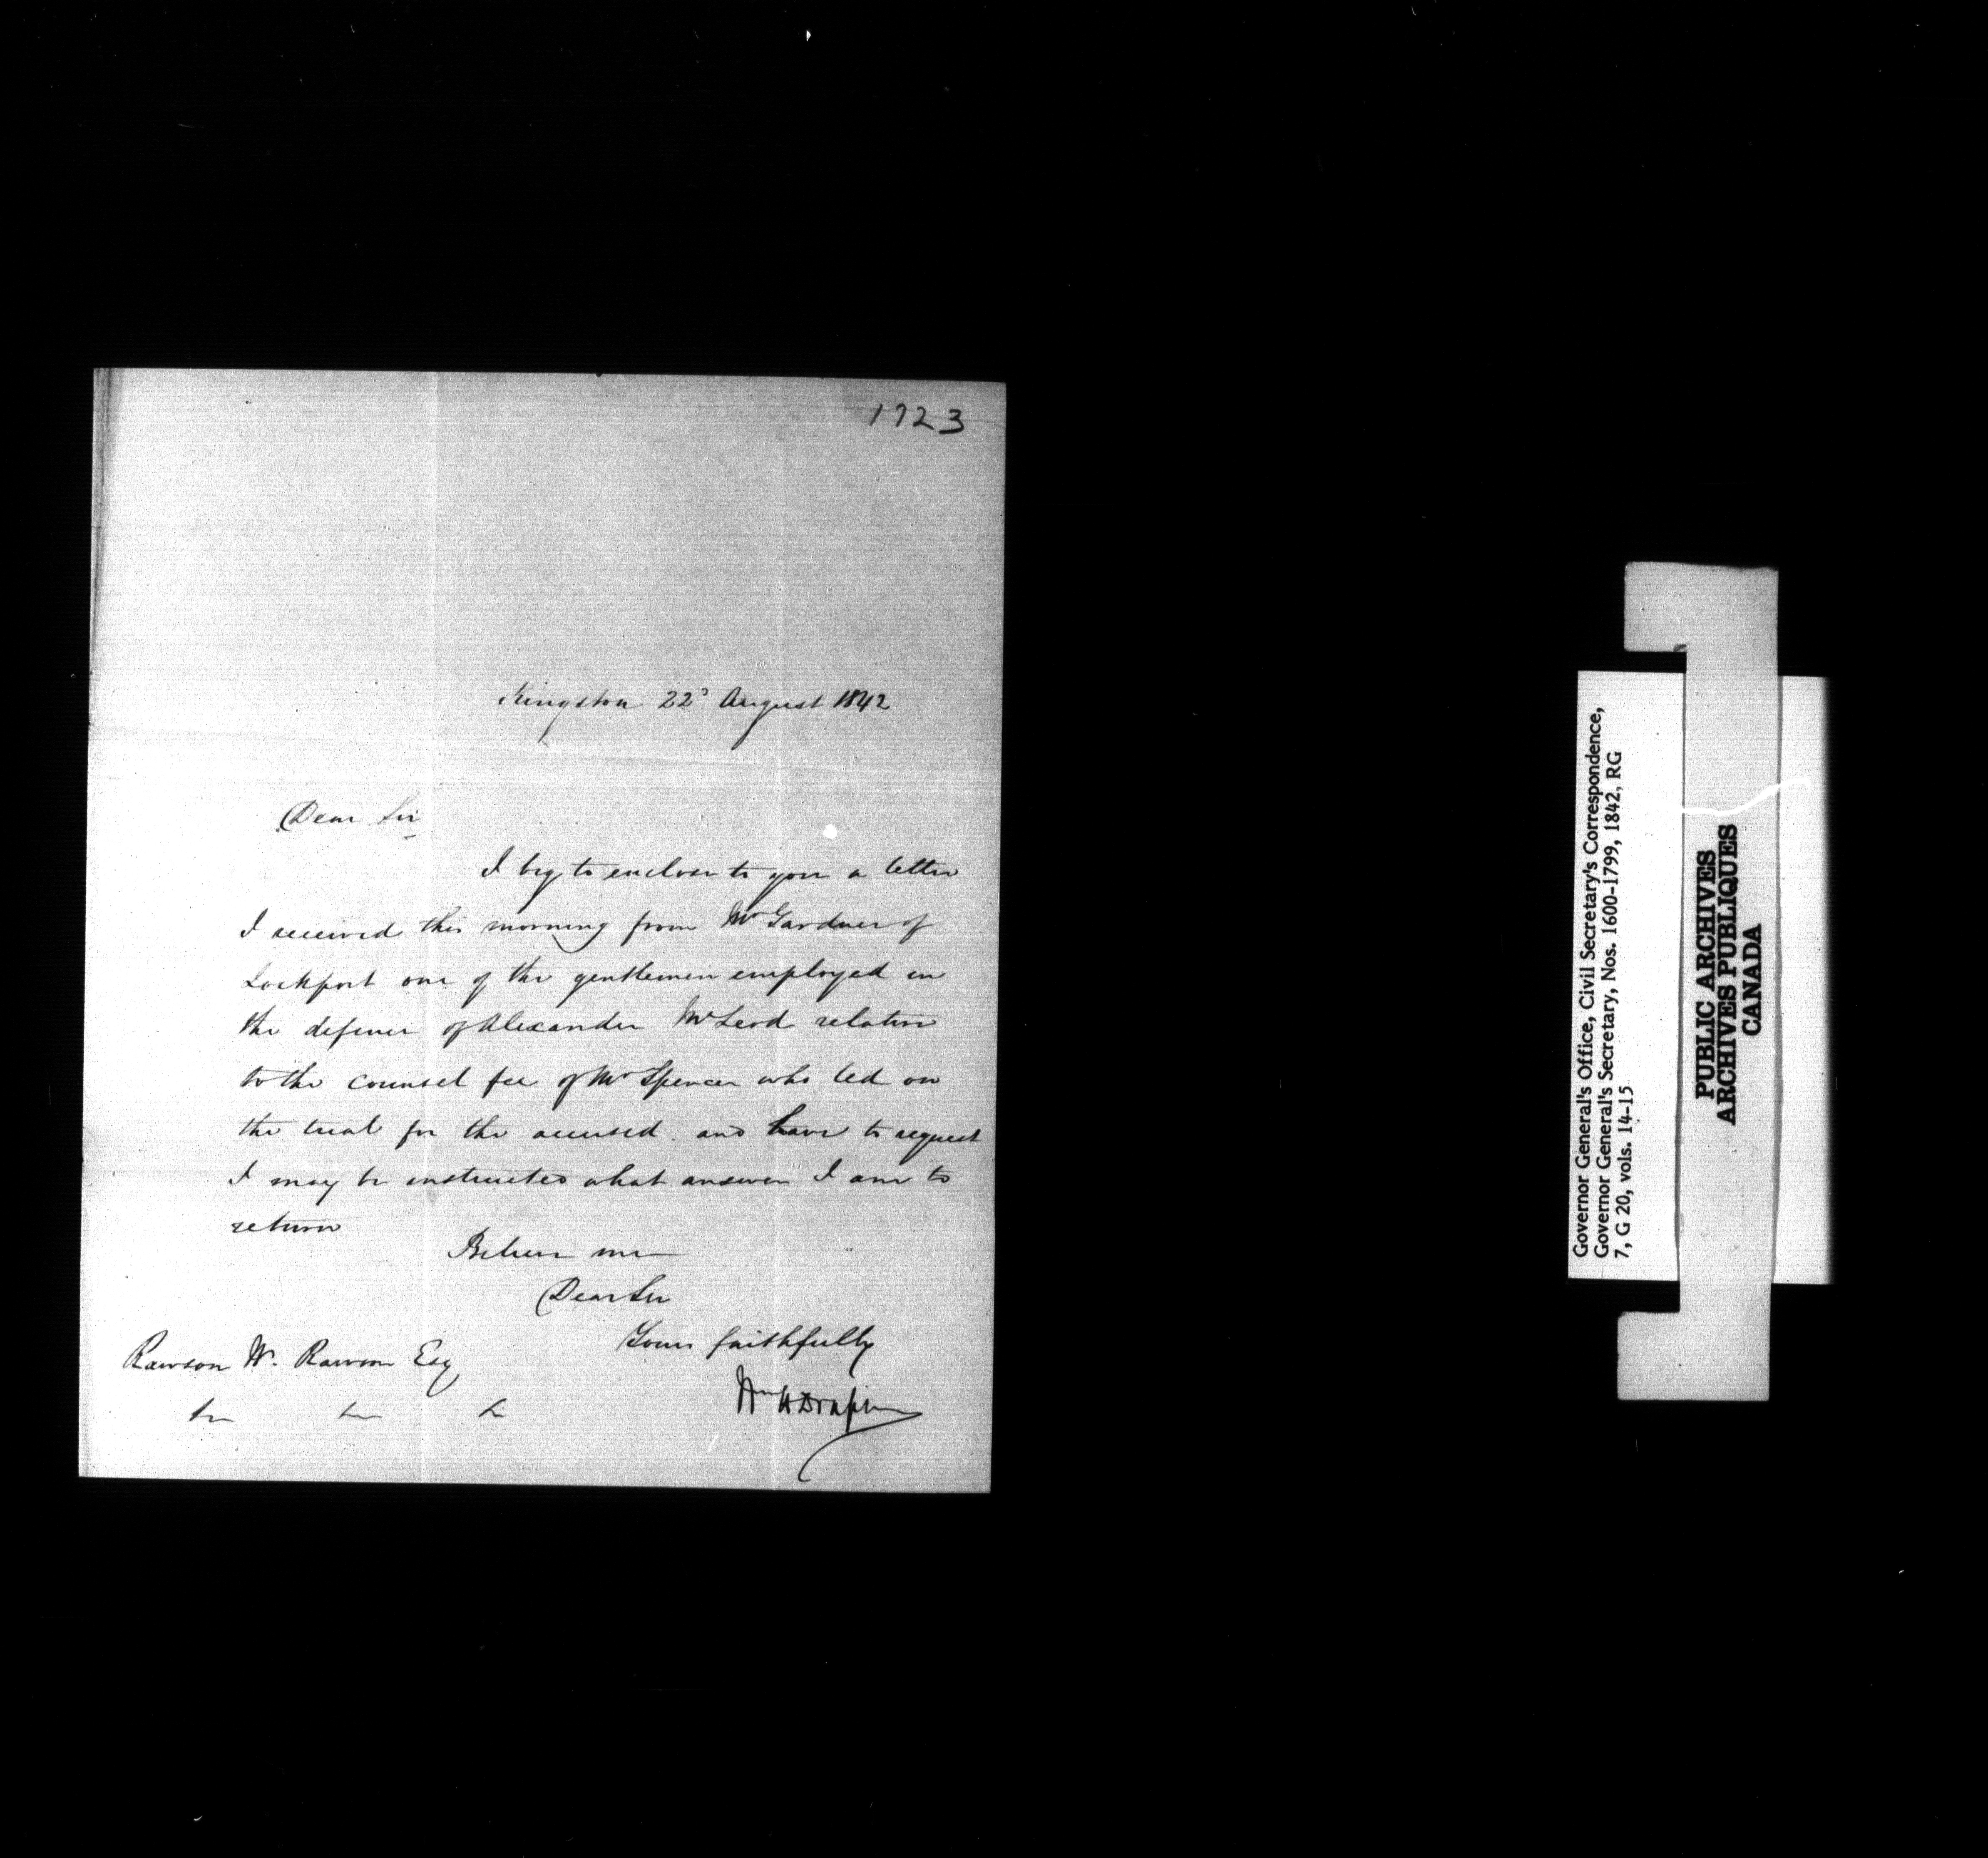 1723
Kingston 22d August 1842
Dear Sir
I beg to enclose to you a letter
I received this morning from Mr Gardner of
Lockport one of the gentlemen employed in
the defence of Alexander McLeod relative
to the counsel fee of Mr Spencer who led on
the trial for the accused. and have to request
I may be instructed what answer I am to
return
Believe me
Dear Sir
Yours faithfully
Wm H Draper
Rawson W. Rawson Esq
Governor General's Office, Civil Secretary's Correspondence,
Governor General's Secretary, Nos. 1600-1799, 1842, RG
7, G 20, vols. 14-15
PUBLIC ARCHIVES
ARCHIVES PUBLIQUES
CANADA